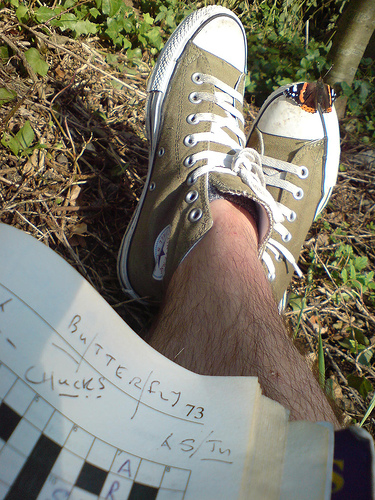 BUTTERFLY 73
CHUCKS
LS/IN
A
R
S